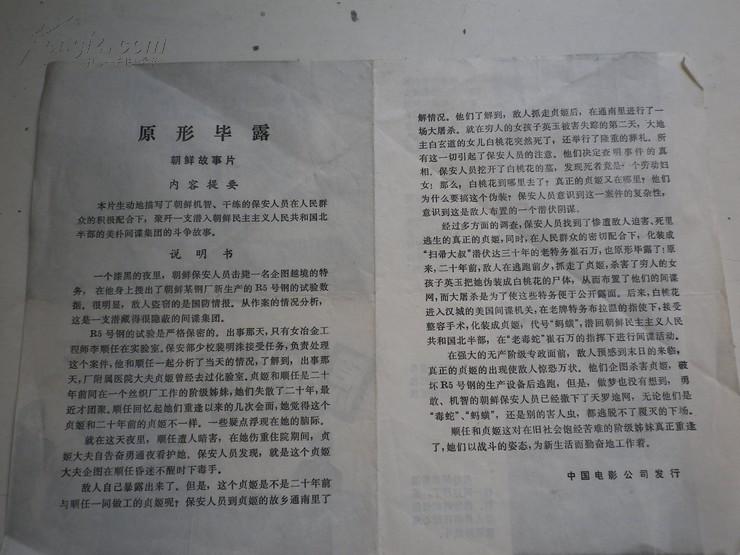 原形毕露
朝鲜故事片
内容提要
本片生动地描写了朝鲜机智、干练的保安人员在人民群
众的积极配合下，聚歼一支潜入朝鲜民主主义人民共和国北
半部的美朴间谍集团的斗争故事。
说明书
一个漆黑的夜里，朝鲜保安人员击毙一名企图越境的特
务，在他身上搜出了朝鲜某钢厂新生产的R5号钢的试验数
据。很明显，敌人盗窃的是国防情报。从作案的情况分析，
这是一支潜藏得很隐蔽的间谍集团。
R5号钢的试验是严格保密的。出事那天，只有女冶金工
程师李顺任在实验室。保安部少校裴明洙接受任务，负责处理
这个案件，他和顺任一起分析了当天的情况，了解到，出事那
天，厂附属医院大夫贞姬曾经去过化验室。贞姬和顺任是二十
年前同在一个丝织厂工作的阶级姊妹，她们失散了二十年，最
近才团聚。顺任回忆起她们重逢以来的几次会面，她觉得这个
贞姬和二十年前的贞姬不一样。一些疑点浮现在她的脑际。
就在这天夜里，顺任遭人暗害，在她伤重住院期间，贞
姬大夫自告奋勇通夜看护她。保安人员发现，就是这个贞姬
大夫企图在顺任昏迷不醒时下毒手。
敌人自己暴露出来了。但是，这个贞姬是不是二十年前
与顺任一同做工的贞姬呢？保安人员到贞姬的故乡通南里了
解情况。他们了解到，敌人抓走贞姬后，在通南里进行了一
场大屠杀。就在穷人的女孩子英玉被害失踪的第二天，大地
主白玄道的女儿白桃花突然死了，还举行了隆重的葬礼。所
有这一切引起了保安人员的注意。他们决定查明事件的真
相。保安人员挖开了白桃花的墓，发现死者竟是一个劳动妇
女：那么，白桃花到哪里去了？真正的贞姬又在哪里？他们
为什么要搞这个伪装？保安人员意识到这一案件的复杂性，
意识到这是敌人布置的一个潜伏阴谋。
经过多方面的调查，保安人员找到了惨遭敌人迫害、死里
逃生的真正的贞姬，同时，在人民群众的密切配合下，化装成
“扫帚大叔”潜伏达三十年的老特务崔石万，也原形毕露了：原
来，二十年前，敌人在逃跑前夕，抓走了贞姬，杀害了穷人的女
孩子英玉把她伪装成白桃花的尸体，从而布置了他们的间谍
网，而大屠杀是为了使这些特务便于公开露面。后来，白桃花
进入汉城的美国间谍机关，在老牌特务布拉温的指使下，接受
整容手术，化装成贞姬，代号“蚂蟥”，潜回朝鲜民主主义人民
共和国北半部，在“老毒蛇”崔石万的指挥下进行间谍活动。
在强大的无产阶级专政面前，敌人预感到末日的来临，
真正的贞姬的出现使敌人惊恐万状。他们企图杀害贞姬，破
坏R5号钢的生产设备后逃跑，但是，做梦也没有想到，勇
敢、机智的朝鲜保安人员已经撒下了天罗地网，无论他们是
“毒蛇”、“蚂蟥”，还是别的害人虫，都逃脱不了覆灭的下场。
顺任和贞姬这对在旧社会饱经苦难的阶级姊妹真正重逢
了，她们以战斗的姿态，为新生活而勤奋地工作着。
中国电影公司发行